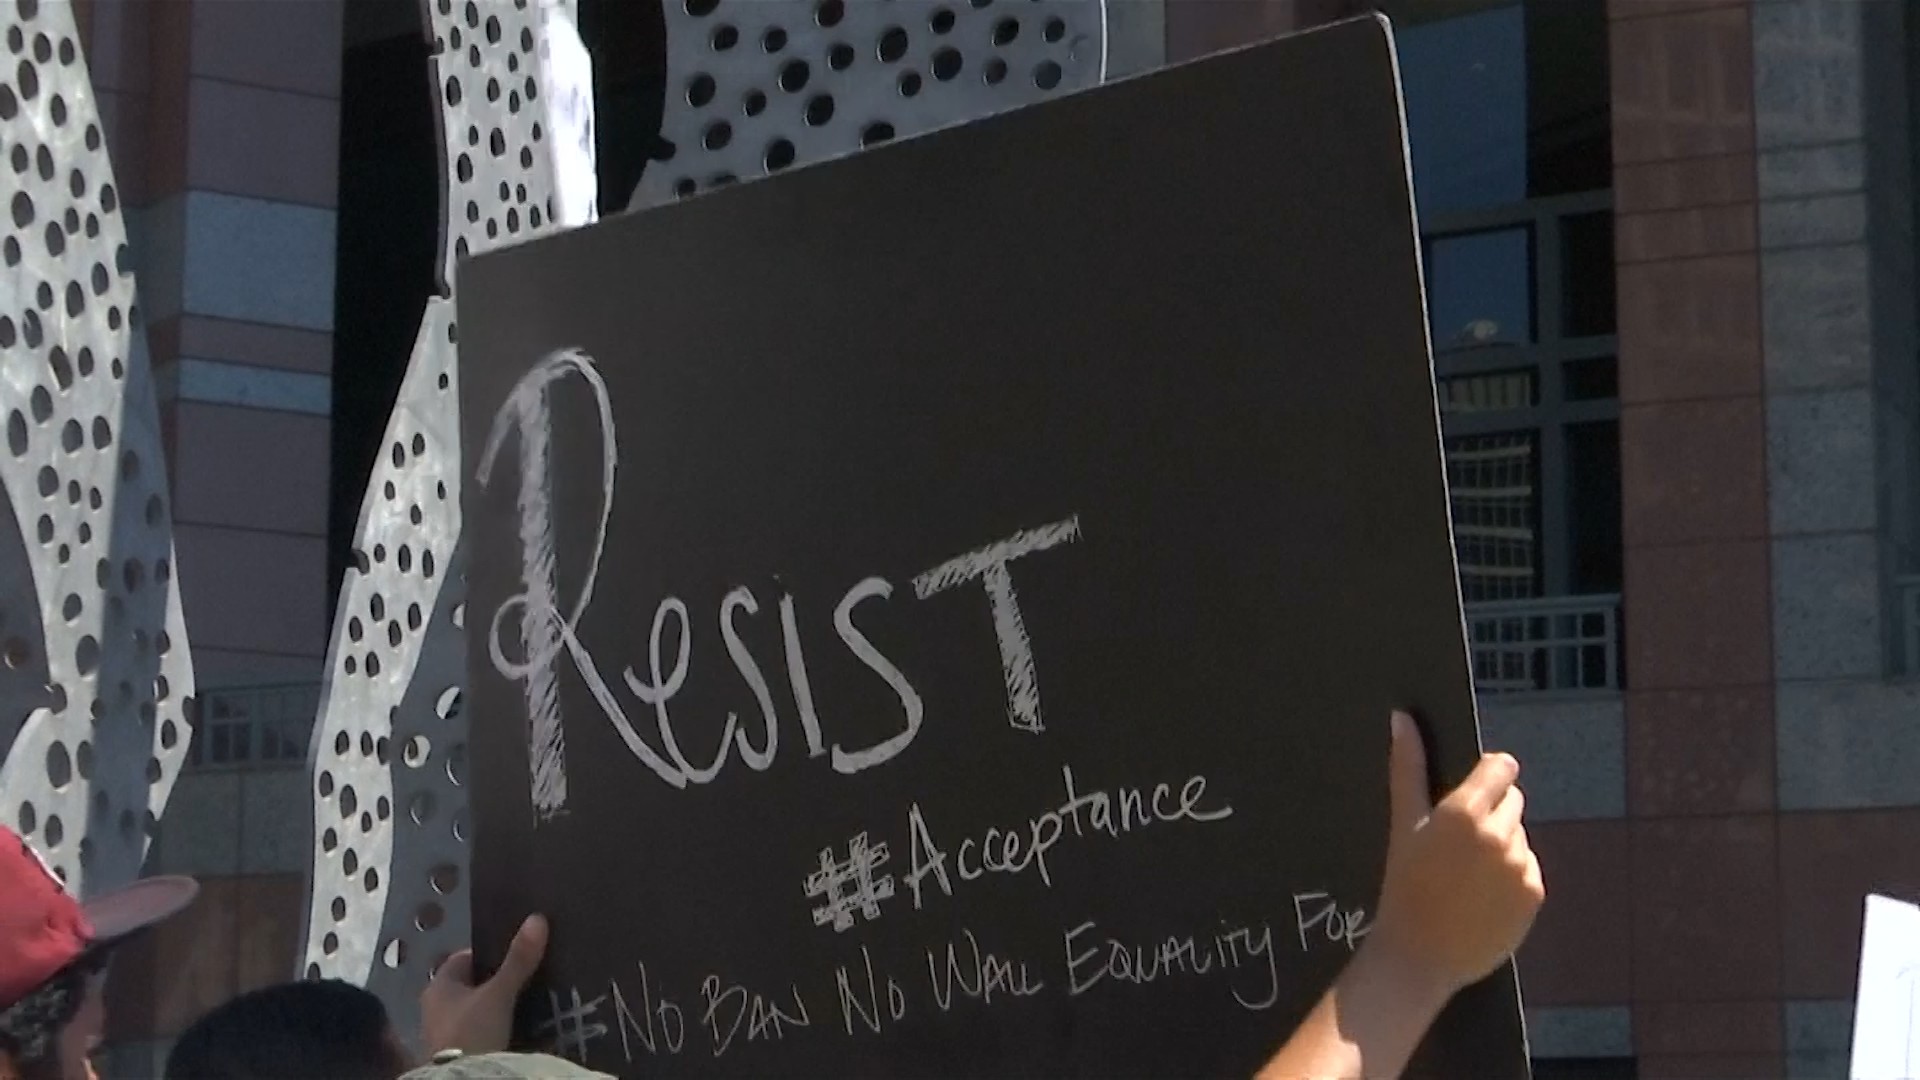 Resist
#Acceptance
#No Ban No Wall Equality For